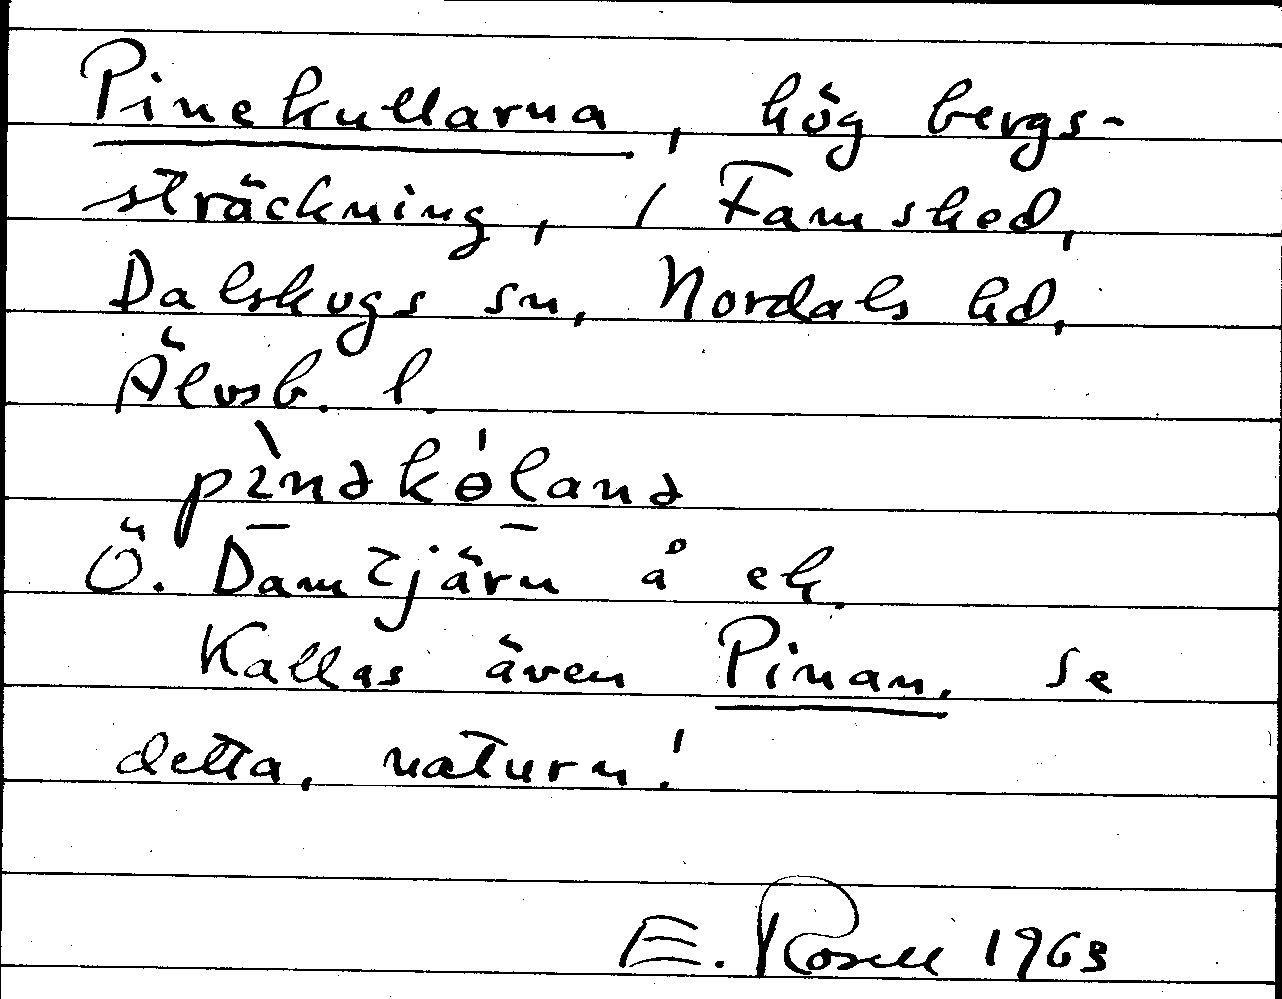 Pinekullarna, hög bergs-
sträckning, / Famshed,
Dalskogs sn, Nordals hd,
Älvsb. l.
pìnəkɵ́lanə
Ö. Damtjärn å ek.
Kallas även Pinan. Se
detta, naturn!
E. Rosell 1963